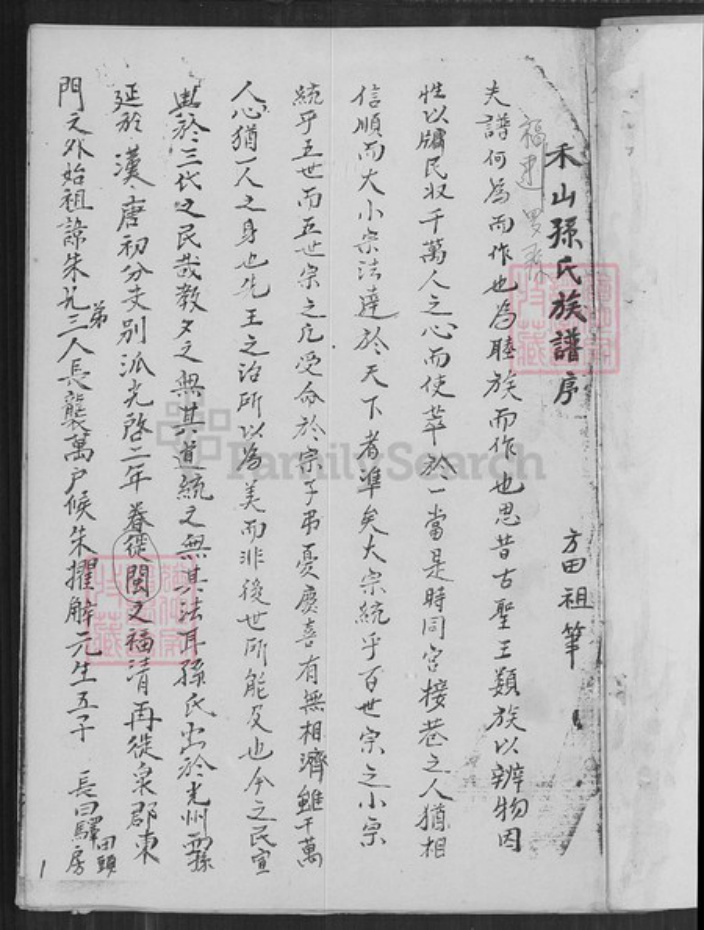 禾山孫氏族譜序
方田祖筆
福建
夫譜何為而作也為睦族而作也思昔古聖王類族以辨物因
性以牖民收千萬人之心而使萃於一當是時同宮接巷之人猶相
信順而大小宗法達於天下者準矣大宗統乎百世宗之小宗
統乎五世而五世宗之凡受命於宗子弔憂慶喜有無相濟雖千萬
人心猶一人之身也先王之治所以為美而非後世所能及也今之民豈
異於三代之民哉教之無其道統之無其法耳孫氏出於光州
延於漢唐初分支別派光啓二年眷從閩之福清再徙泉郡東
門之外始祖諒朱兄弟三人長襲萬戶候朱擢解元生五子 長曰驛田頭房
1
FamilySearch